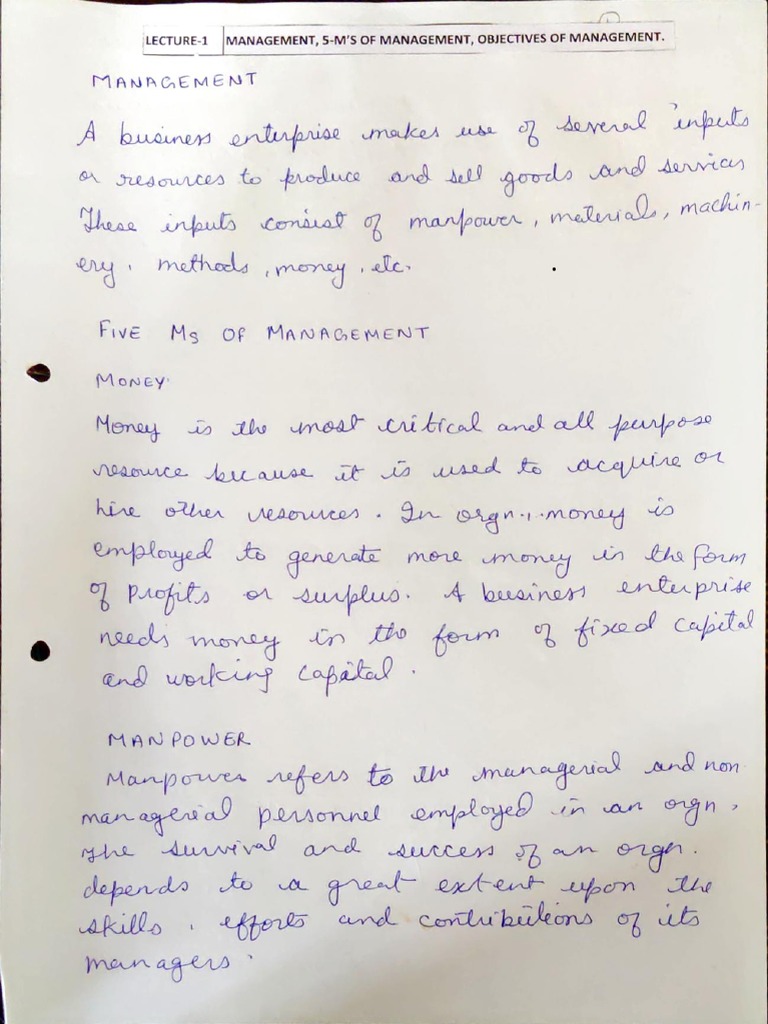 1
LECTURE-1 MANAGEMENT, 5-M'S OF MANAGEMENT, OBJECTIVES OF MANAGEMENT.
MANAGEMENT
A business enterprise makes use of several inputs
or resources to produce and sell goods and services
These inputs consist of manpower, materials, machin-
ery, methods, money, etc.
FIVE Ms OF MANAGEMENT
MONEY
Money is the most critical and all purpose
resource because it is used to acquire or
hire other resources. In orgn., money is
employed to generate more money in the form
of profits or surplus. A business enterprise
needs money in the form of fixed capital
and working capital.
MANPOWER
Manpower refers to the managerial and non
managerial personnel employed in an orgn.
The survival and success of an orgn.
depends to a great extent upon the
skills, efforts and contributions of its
managers.